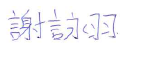 謝詠羽